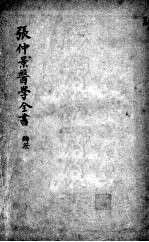 張仲景醫學全書